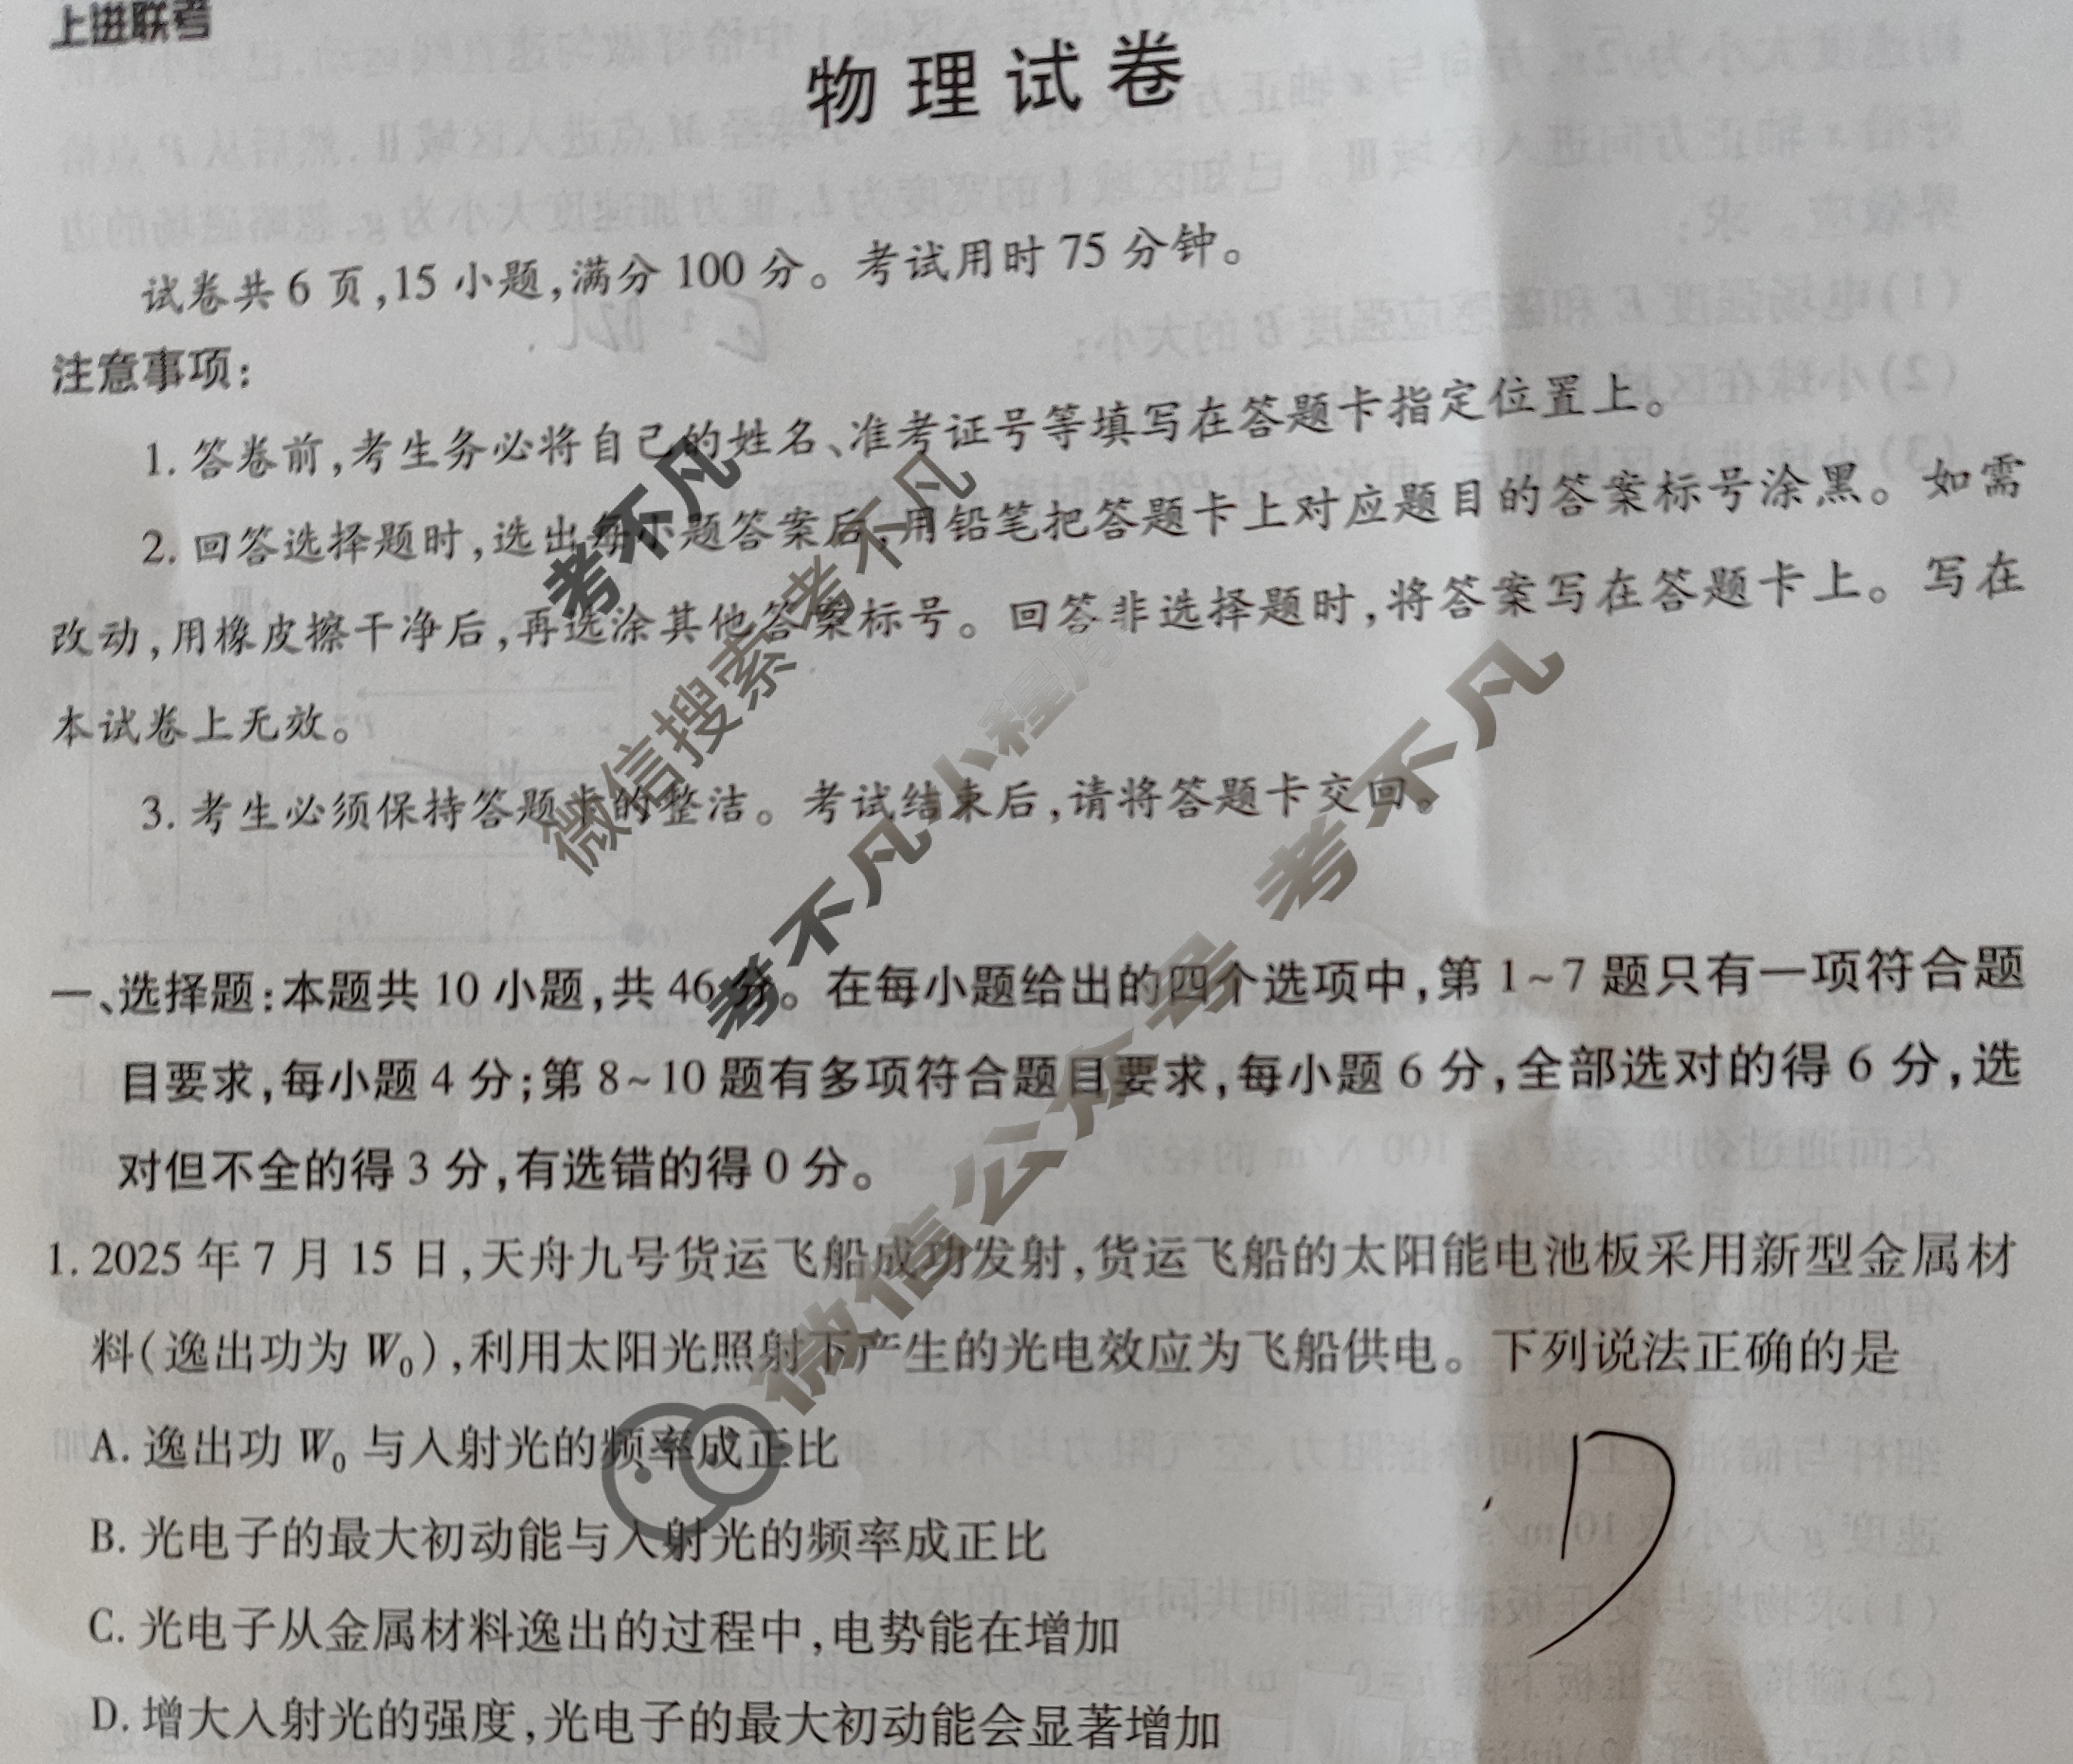 上进联考
物理试卷
试卷共6页,15小题,满分100分。考试用时75分钟。
注意事项:
1. 答卷前,考生务必将自己的姓名、准考证号等填写在答题卡指定位置上。
2. 回答选择题时,选出每小题答案后,用铅笔把答题卡上对应题目的答案标号涂黑。如需
改动,用橡皮擦干净后,再选涂其他答案标号。回答非选择题时,将答案写在答题卡上。写在
本试卷上无效。
3. 考生必须保持答题卡的整洁。考试结束后,请将答题卡交回。
一、选择题:本题共10小题,共46分。在每小题给出的四个选项中,第1~7题只有一项符合题
目要求,每小题4分;第8~10题有多项符合题目要求,每小题6分,全部选对的得6分,选
对但不全的得3分,有选错的得0分。
1. 2025年7月15日,天舟九号货运飞船成功发射,货运飞船的太阳能电池板采用新型金属材
料(逸出功为W₀),利用太阳光照射下产生的光电效应为飞船供电。下列说法正确的是
A. 逸出功W₀与入射光的频率成正比
B. 光电子的最大初动能与入射光的频率成正比
C. 光电子从金属材料逸出的过程中,电势能在增加
D. 增大入射光的强度,光电子的最大初动能会显著增加
D
考不凡
微信搜索考不凡
考不凡小程序
微信公众号 考不凡